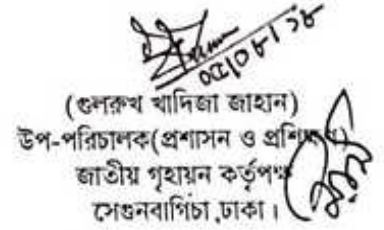 (গুলরুখ খাদিজা জাহান)
উপ-পরিচালক(প্রশাসন ও প্রশিক্ষণ)
জাতীয় গৃহায়ন কর্তৃপক্ষ
সেগুনবাগিচা,ঢাকা।